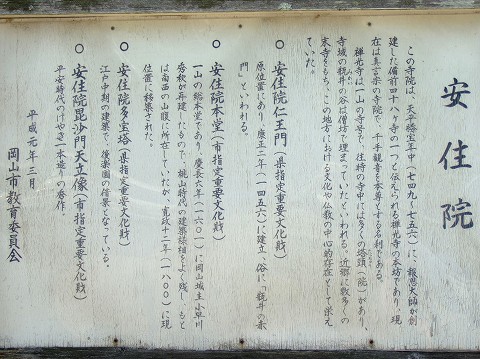 安住院
この寺院は、天平勝宝年中(七四九〜七五六)に、報恩大師が創
建した備前四十八ヶ寺の一つと伝えられる禅光寺の本坊であり、現
在は真言宗の寺院で、千手観音を本尊とする名刹である。
禅光寺は一山の寺号で、往時の寺中には多くの塔頭(院)があり、
寺域の瓶井の谷は僧坊で埋まっていたといわれる。近郷に数多くの
末寺をもち、この地方における文化や仏教の中心的存在として栄え
ていた。
○ 安住院仁王門(県指定重要文化財)
原位置にあり、康正二年(一四五六)に建立、俗に「瓶井の赤
門」といわれる。
○ 安住院本堂(市指定重要文化財)
一山の総本堂であり、慶長六年(一六〇一)に岡山城主小早川
秀秋が再建したもので、桃山時代の建築様相をよく残し、もと
は南西の山腹に所在していたが、寛政十二年(一八〇〇)に現
位置に移築された。
○ 安住院多宝塔(県指定重要文化財)
江戸中期の建築で、後楽園の借景となっている。
○ 安住院毘沙門天立像(市指定重要文化財)
平安時代のけやき一本造りの秀作。
平成元年三月
岡山市教育委員会